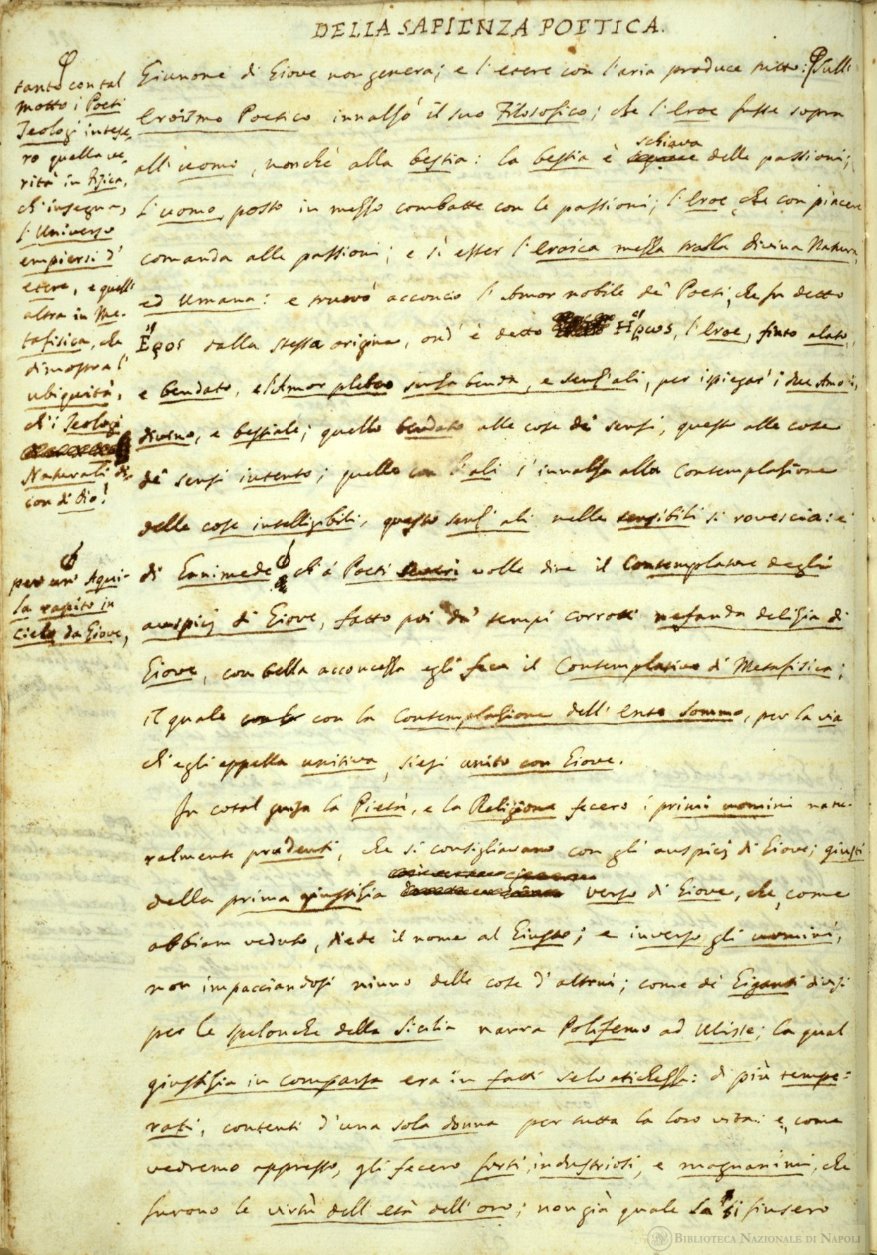 DELLA SAPIENZA POETICA.
tanto con tal
motto i Poeti
Teologi intese-
ro quella ve-
rità in Fisica,
ch'insegna,
l'Universo
empiersi d'
etere, e quell'
altra in Me-
tafisica, che
dimostra l'
ubiquità,
ch'i Teologi
Naturali di-
con di Dio!
per un' Aqui-
la rapito in
cielo da Giove,
Giunone di Giove non genera; e l'etere con l'aria produce tutto: Sull'
Eroismo Poetico innalzò il suo Filosofico; che l'Eroe fusse sopra
all'uomo, nonchè alla bestia: la bestia è schiava delle passioni;
l'uomo posto in mezzo combatte con le passioni; l'Eroe, che con piacere
comanda alle passioni; e sì esser l'eroica mezza tralla divina Natura,
ed Umana: e truovò acconcio l'Amor nobile de' Poeti, che fu detto
Ἔρος dalla stessa origine, ond' è detto Ἥρως, l'Eroe, finto alato,
e bendato, e l'Amor plebeo senza benda, e senz'ali, per ispiegar' i due Amori,
divino, e bestiale; quello bendato alle cose de' sensi, questo alle cose
de' sensi intento; quello con l'ali s'innalza alla contemplazione
delle cose intelligibili, questo senz' ali nelle sensibili si rovescia: e
di Ganimede ch'a' Poeti volle dire il Contemplatore degli
auspicj di Giove, fatto poi da' tempi corrotti nefanda delizia di
Giove, con bella acconcezza egli fece il Contemplativo di Metafisica;
il quale con la contemplazione dell' Ente sommo, per la via
ch'egli appella unitiva, siesi unito con Giove.
In cotal guisa la Pietà, e la Religione fecero i primi uomini natu-
ralmente prudenti, che si consigliavano con gli auspicj di Giove; giusti
della prima giustizia verso di Giove, che, come
abbiam veduto, diede il nome al Giusto; e inverso gli uomini,
non impacciandosi niuno delle cose d'altrui; come de' Giganti divisi
per le spelonche della Sicilia narra Polifemo ad Ulisse; la qual
giustizia in comparsa era in fatti selvatichezza: di più tempe-
rati, contenti d'una sola donna per tutta la loro vita: e, come
vedremo appresso, gli fecero forti, industriosi, e magnanimi, che
furono le virtù dell' età dell' oro; non già quale la si finsero
BIBLIOTECA NAZIONALE DI NAPOLI